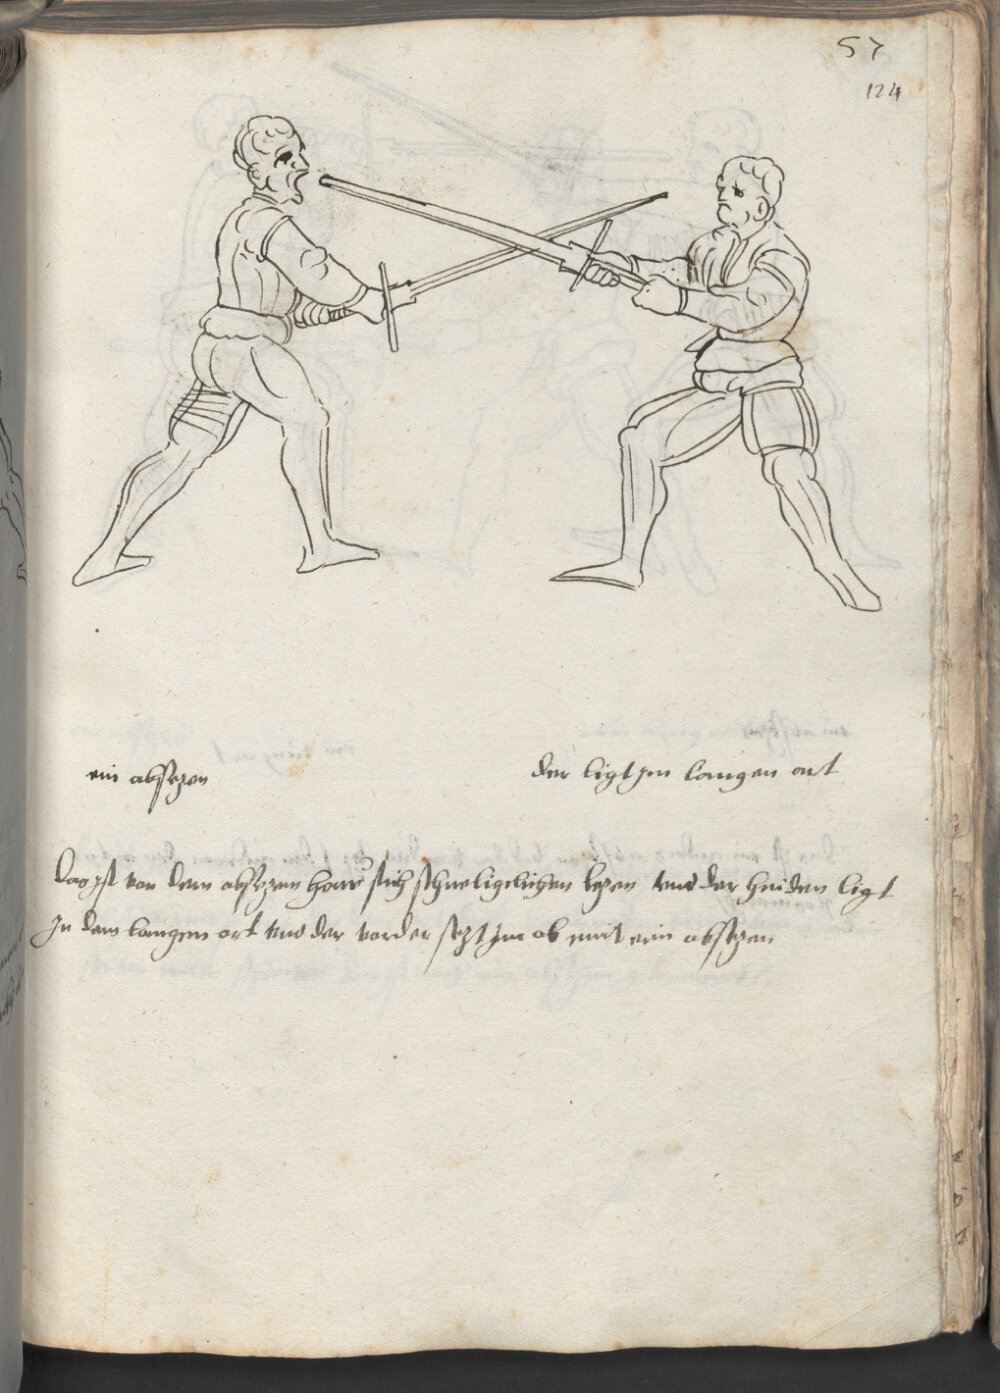 57
124
ein absetzen
der ligt jm langen ort
Das jst von dem absetzen haw stich schneligclichen letzen vnd der hinden ligt
Jn dem langen ort vnd der vorder setzt jm ab mit ein absetzen